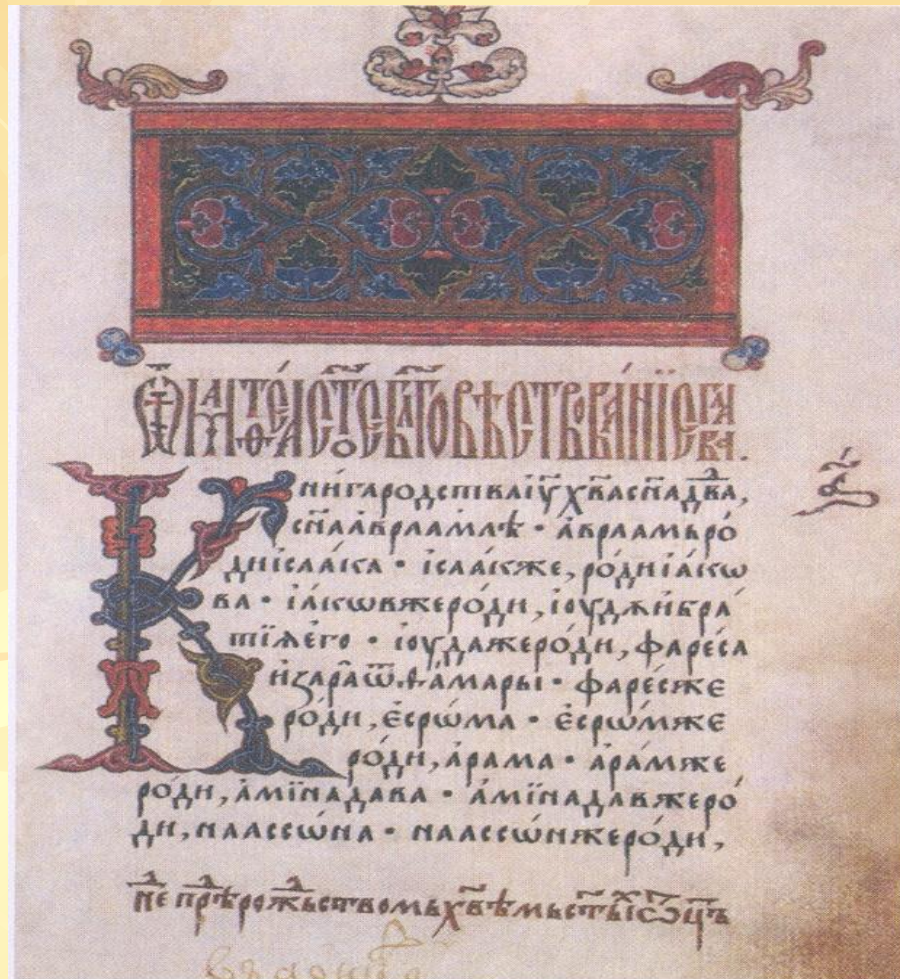 Ѿ мат͏ѳеа ст͏о́е бл͏говѣствова́нїе гла́ва.
Кни́га родства і͏у҃ х҃ва сн҃а дв҃а,
сн҃а авраамлѣ · а҆враамьро́
ди ісаа́ка · ісаа́кже, ро́ди іа́кѡ
ва · іа́кѡвжеро́ди, іоуджи҆бра́
тїѧ҆его · іоудажеро́ди, фаре́са
и҆зараѿѳа́мары · фаре́сже
ро́ди, є҆срѡ́ма · є҆срѡ́мже
ро́ди, а҆рама · а҆ра́мже
ро́ди, а҆мїнадава · а҆мїнадавжеро́
ди, наассѡ́на · наассѡ́нжеро́ди,
а҃
не прⷣѣ рожⷣьствомь х҃вѣмь ст҃ыⷯ ѿц҃ъ